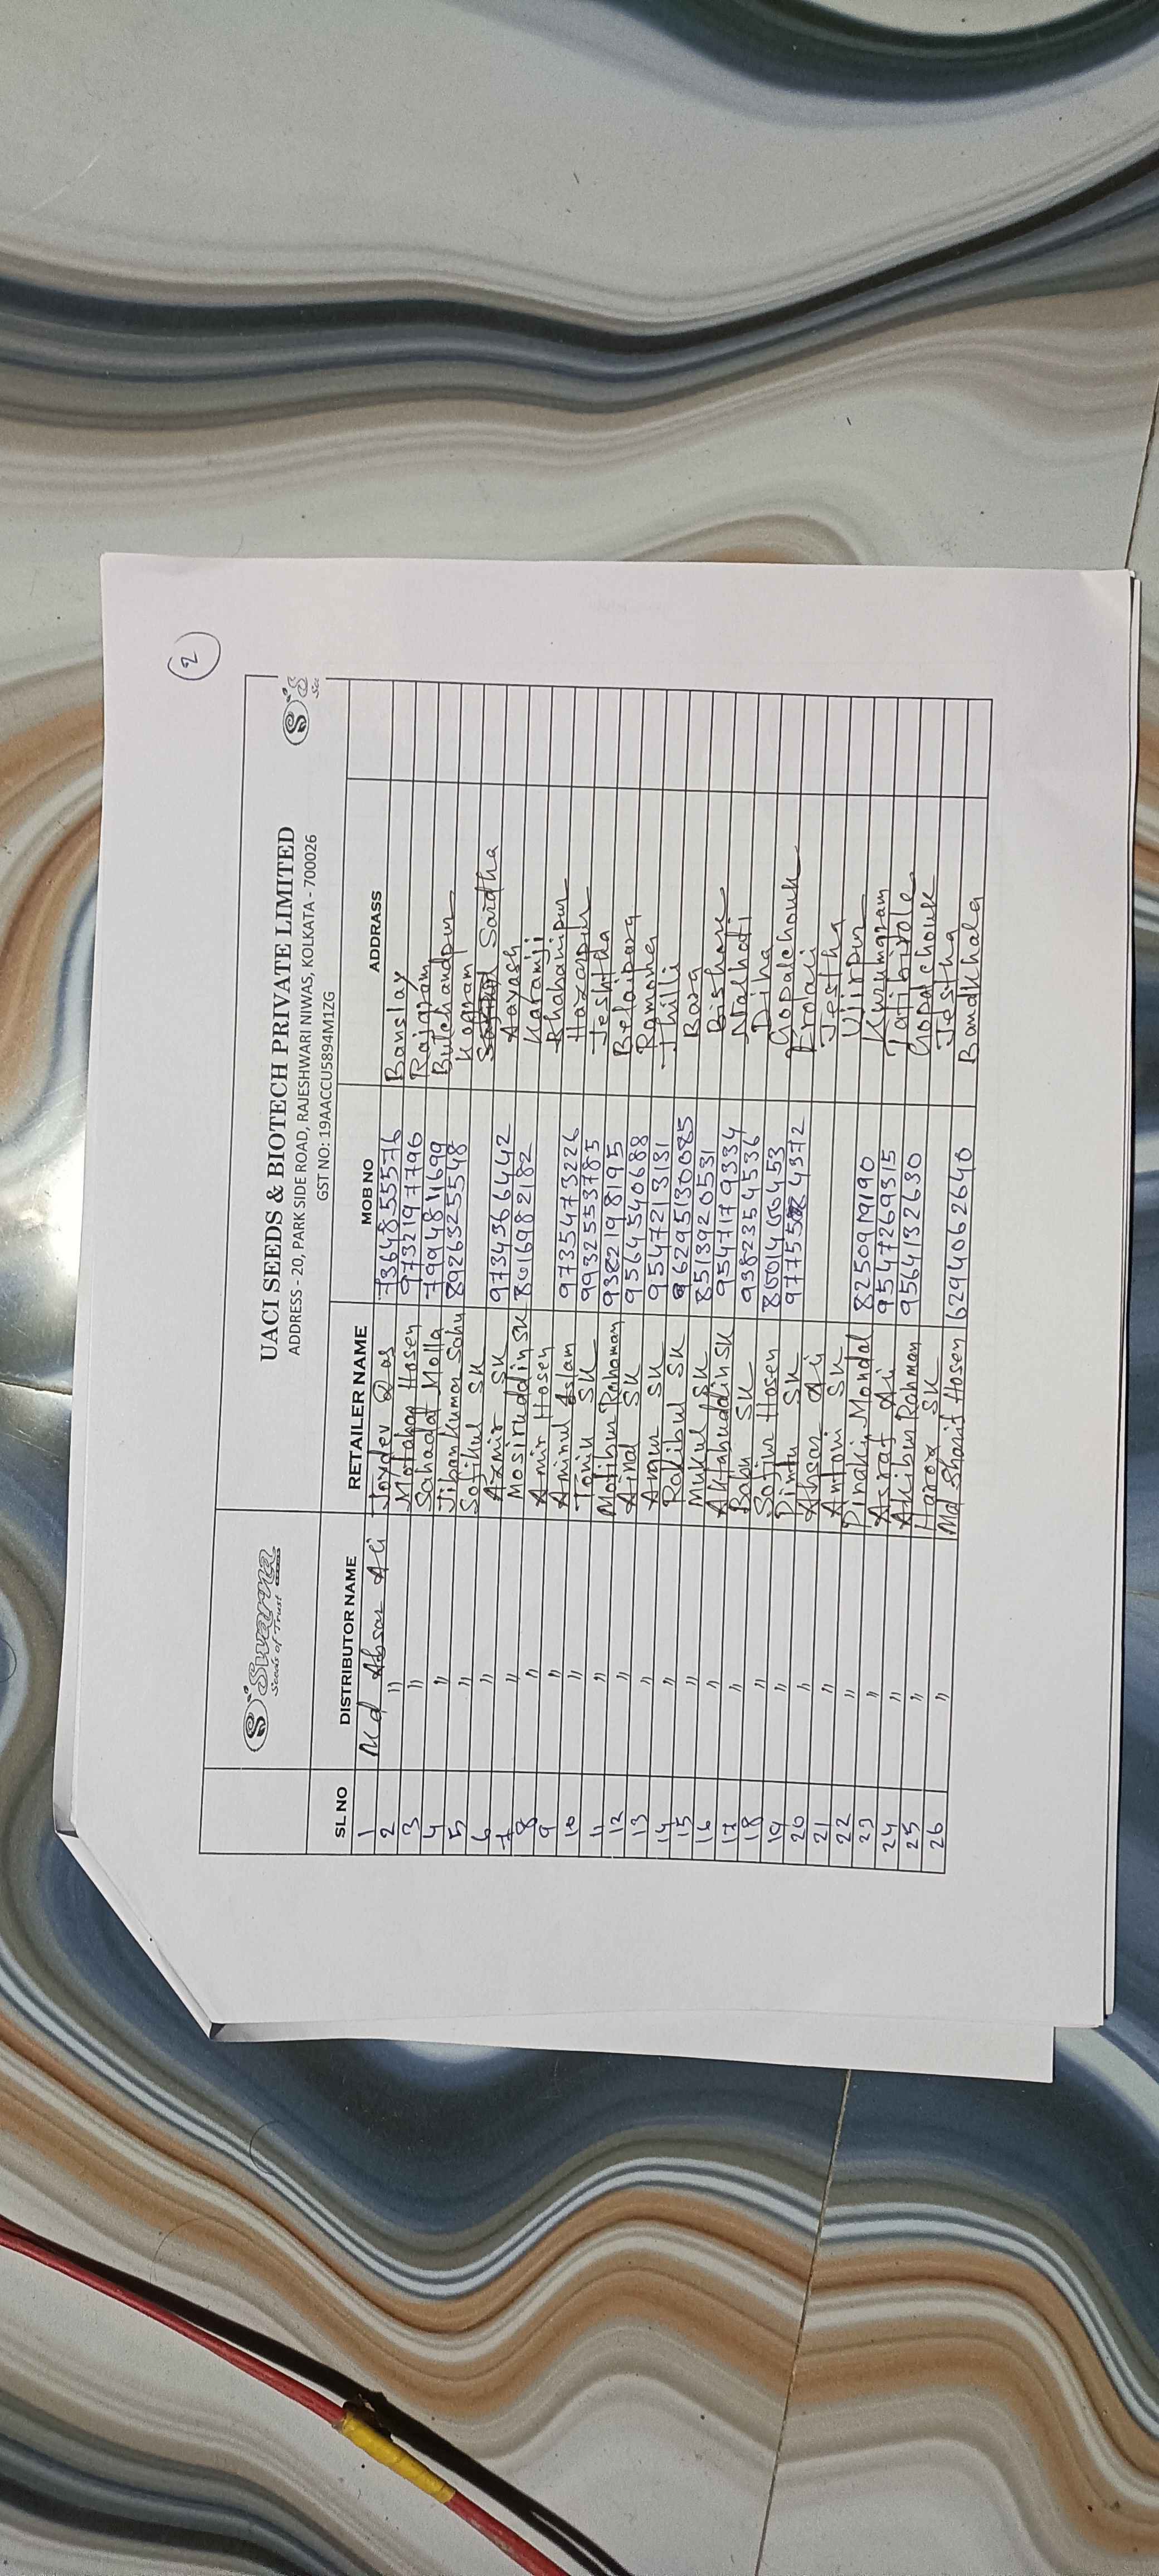 2
Swarna
Seeds of Trust
UACI SEEDS & BIOTECH PRIVATE LIMITED
ADDRESS - 20, PARK SIDE ROAD, RAJESHWARI NIWAS, KOLKATA - 700026
GST NO: 19AACCU5894M1ZG
SL NO DISTRIBUTOR NAME RETAILER NAME MOB NO ADDRASS
1 Md Ahsar Ali Joydev Das 7364855576 Banslay
2 " Motahar Hosen 9732197796 Rajgram
3 " Sahadat Molla 7994811699 Butchandpur
4 " Jiban Kumar Sahu 8926325548 Kogram
5 " Sofikul SK Saidha
6 " Azmir SK 9734366442 Aayash
7 " Mosiruddin SK 8016982182 Karamji
8 " Amir Hosen Bhabanipur
9 " Aminul Islam 9735473226 Hazarpur
10 " Tonik SK 9932553785 Jeshtha
11 " Motibur Rahoman 9382198195 Belaipara
12 " Ainal SK 9564540688 Ramanha
13 " Angur SK 9547213131 Jhilli
14 " Rakibul SK 9629530085 Bara
15 " Mukul SK 8513920531 Bishore
16 " Aktabuddin SK 9547179334 Nalhati
17 " Babu SK 9382354536 Diha
18 " Sofiur Hosen Gopalchouk
19 " Pintu SK Erolali
20 " Ahsar Ali Jestha
21 " Antoni SK Ujirpur
22 " Pinaki Mondal 8250919190 Kurumgram
23 " Asraf Ali 9547269315 Tatibirole
24 " Akibur Rahman 9564132630 Gopalchouk
25 " Harox SK Jestha
26 " Md Sharif Hosen 6294062640 Bandkhala